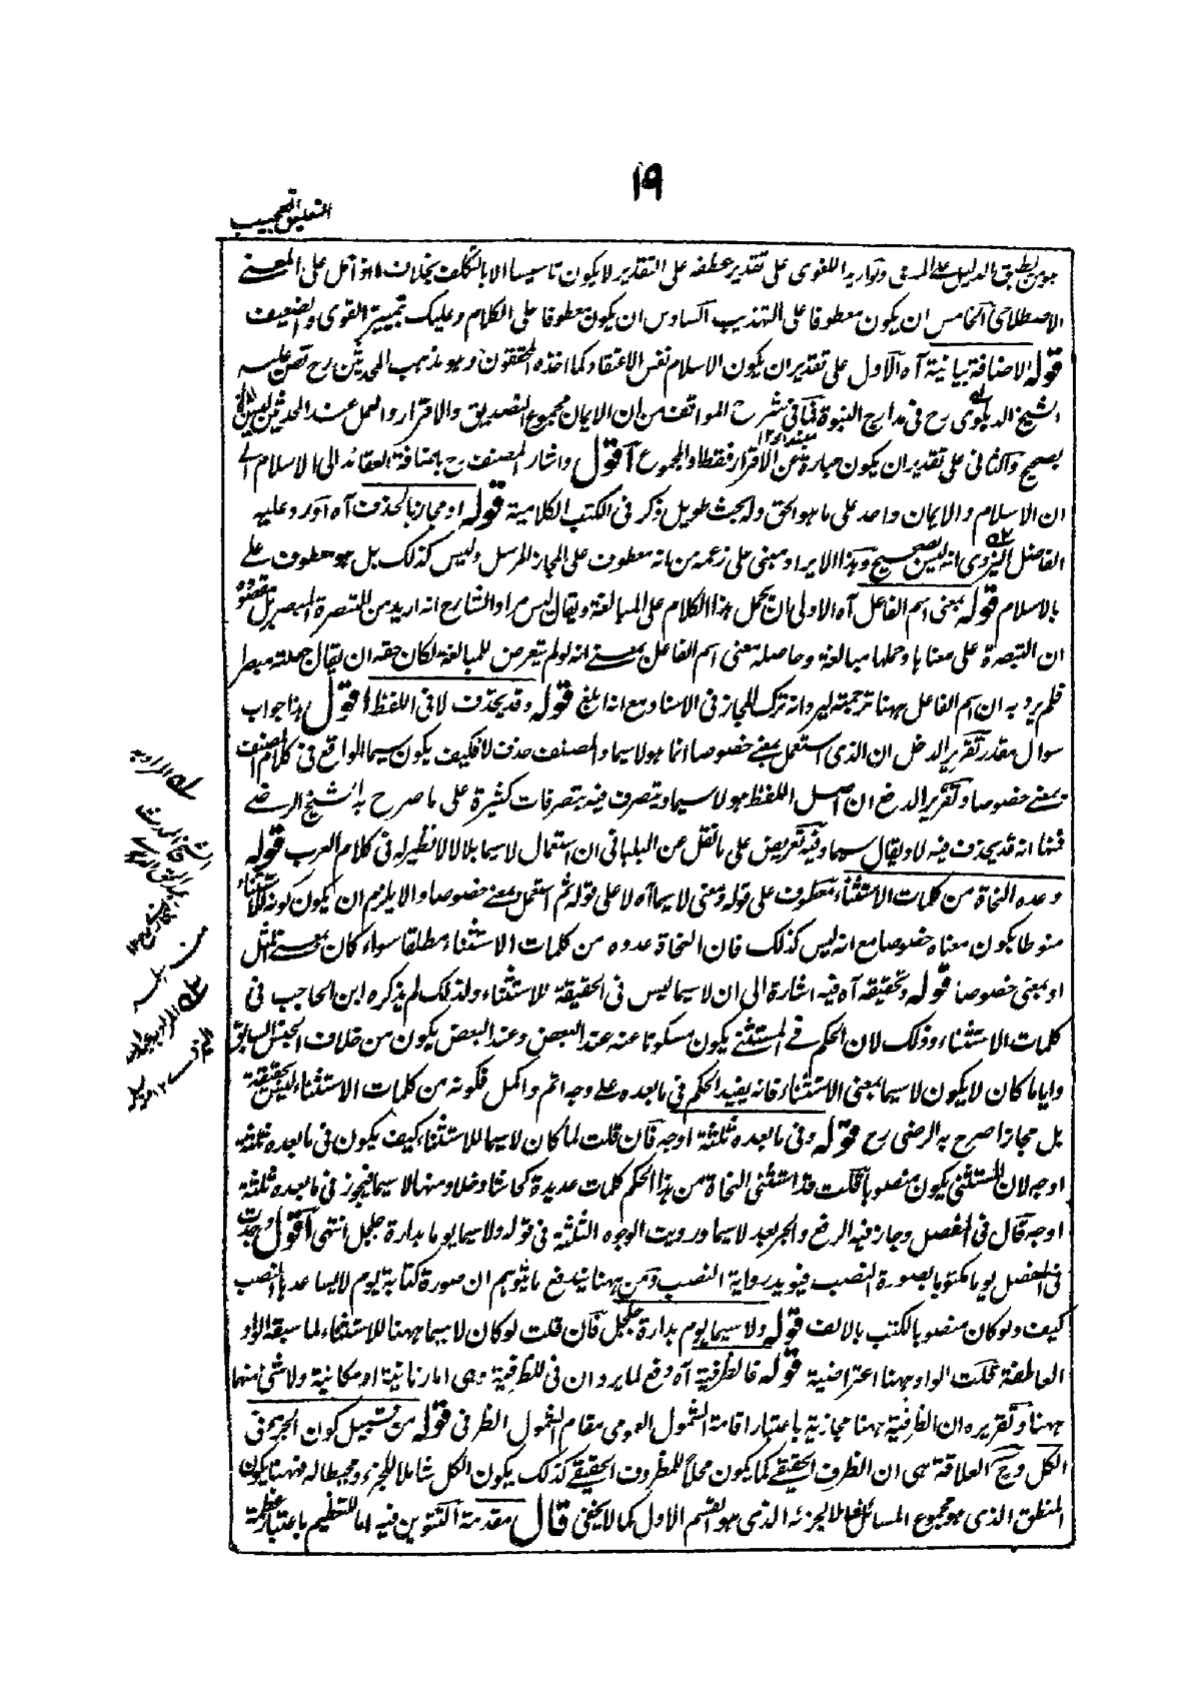 ١٩
التعليق العجيب
الدليل على المدعى وتواريه اللغوى على تقدير عطفه على التقدير لا يكون تاسيسا الا بالتكلف بخلاف ما اذا حمل على المعنى
الاصطلاحى الخامس ان يكون معطوفا على التهذيب السادس ان يكون معطوفا على الكلام وعليك بتمييز القوى والضعيف
قوله الاضافة بيانية آه الاول على تقدير ان يكون الاسلام نفس الاعتقاد كما اخذه المحققون وهو مذهب المحدثين رح نص عليه
الشيخ الدهلوى رح فى مدارج النبوة فما فى شرح المواقف من ان الايمان مجموع التصديق والاقرار والعمل عند المحدثين ليس
بصحيح والثانى على تقدير ان يكون عبارة عن الاقرار فقط او المجموع اقول واشار المصنف رح باضافة العقائد الى الاسلام الى
ان الاسلام والايمان واحد على ما هو الحق وله بحث طويل ذكر فى الكتب الكلامية قوله او مجاز بالحذف آه اورد عليه
الفاضل اليزدى انه ليس بصحيح وهذا الايراد مبنى على زعمه من انه معطوف على المجاز المرسل وليس كذلك بل هو معطوف على
بالاسلام قوله بمعنى اسم الفاعل آه الاولى ان يحمل هذا الكلام على المبالغة ويقال ليس مراد الشارح انه اريد من التبصرة المبصر بل مقصوده
ان التبصرة على معناها وحملها مبالغة وحاصله معنى اسم الفاعل بمعنى انه لو لم يتعرض للمبالغة لكان حقه ان يقال جعلته مبصرا
فلم يرد به ان اسم الفاعل ههنا ترجمة ليرد انه ترك المجاز فى الاسناد مع انه ابلغ قوله وقد يحذف لا فى اللفظ اقول هذا جواب
سوال مقدر تقرير الدخل ان الذى استعمل بمعنى خصوصا انما هو لا سيما والمصنف حذف لا فكيف يكون سيما الواقع فى كلام المصنف
بمعنى خصوصا وتقرير الدفع ان اصل اللفظ هو لا سيما وتصرف فيه بتصرفات كثيرة على ما صرح به الشيخ الرضى
فمنها انه قد يحذف فيه لا ويقال سيما وفيه تعريض على ما نقل عن البليانى ان استعمال لا سيما بلا لا لا نظير له فى كلام العرب قوله
وعده النحاة من كلمات الاستثناء معطوف على قوله ومعنى لا سيما آه لا على قوله ثم استعمل بمعنى خصوصا والا يلزم ان يكون كونه للاستثناء
منوطا بكون معناه خصوصا مع انه ليس كذلك فان النحاة عدوه من كلمات الاستثناء مطلقا سواء كان بمعنى لا مثل
او بمعنى خصوصا قوله وتحقيقه آه فيه اشارة الى ان لا سيما ليس فى الحقيقة للاستثناء ولذلك لم يذكره ابن الحاجب فى
كلمات الاستثناء وذلك لان الحكم فى المستثنى يكون مسكوتا عنه عند البعض وعند البعض يكون من خلاف الجنس السابق
وايا ما كان لا يكون لا سيما بمعنى الاستثناء فانه يفيد الحكم فى ما بعده على وجه اتم واكمل فكونه من كلمات الاستثناء ليس بحقيقة
بل مجازا صرح به الرضى رح قوله وفى ما بعده ثلثة اوجه فان قلت لما كان لا سيما للاستثناء كيف يكون فى ما بعده ثلثة
اوجه لان المستثنى يكون منصوبا قلت قد استثنى النحاة من هذا الحكم كلمات عديدة كحاشا وخلا ومنها لا سيما فيجوز فى ما بعده ثلثة
اوجه قال فى المفصل وجاز فيه الرفع والجر بعد لا سيما ورويت الوجوه الثلثة فى قوله ولا سيما يوما بدارة جلجل انتهى اقول وجدت
فى المفصل يوما مكتوبا بصورة النصب فيؤيد رواية النصب ومن ههنا يندفع ما يتوهم ان صورة كتابة يوم لا يساعدها النصب
كيف ولو كان منصوبا لكتب بالالف قوله ولا سيما يوم بدارة جلجل فان قلت لو كان لا سيما ههنا للاستثناء لما سبقه الواو
العاطفة قلت الواو ههنا اعتراضية قوله فالظرفية آه دفع لما يرد ان فى للظرفية وهى اما زمانية او مكانية ولا شئ منها
ههنا وتقريره ان الظرفية ههنا مجازية باعتبار اقامة الشمول العمومى مقام الشمول الظرفى قوله من قبيل كون الجزء فى
الكل وح العلاقة هى ان الظرف الحقيقى كما يكون محلا للمظروف الحقيقى كذلك يكون الكل شاملا للجزء ومحيطا له فههنا يكون
المنطق الذى هو مجموع المسائل شاملا لجزئه الذى هو القسم الاول كما لا يخفى قال مقدمة التنوين فيه اما للتعظيم باعتبار عظمة